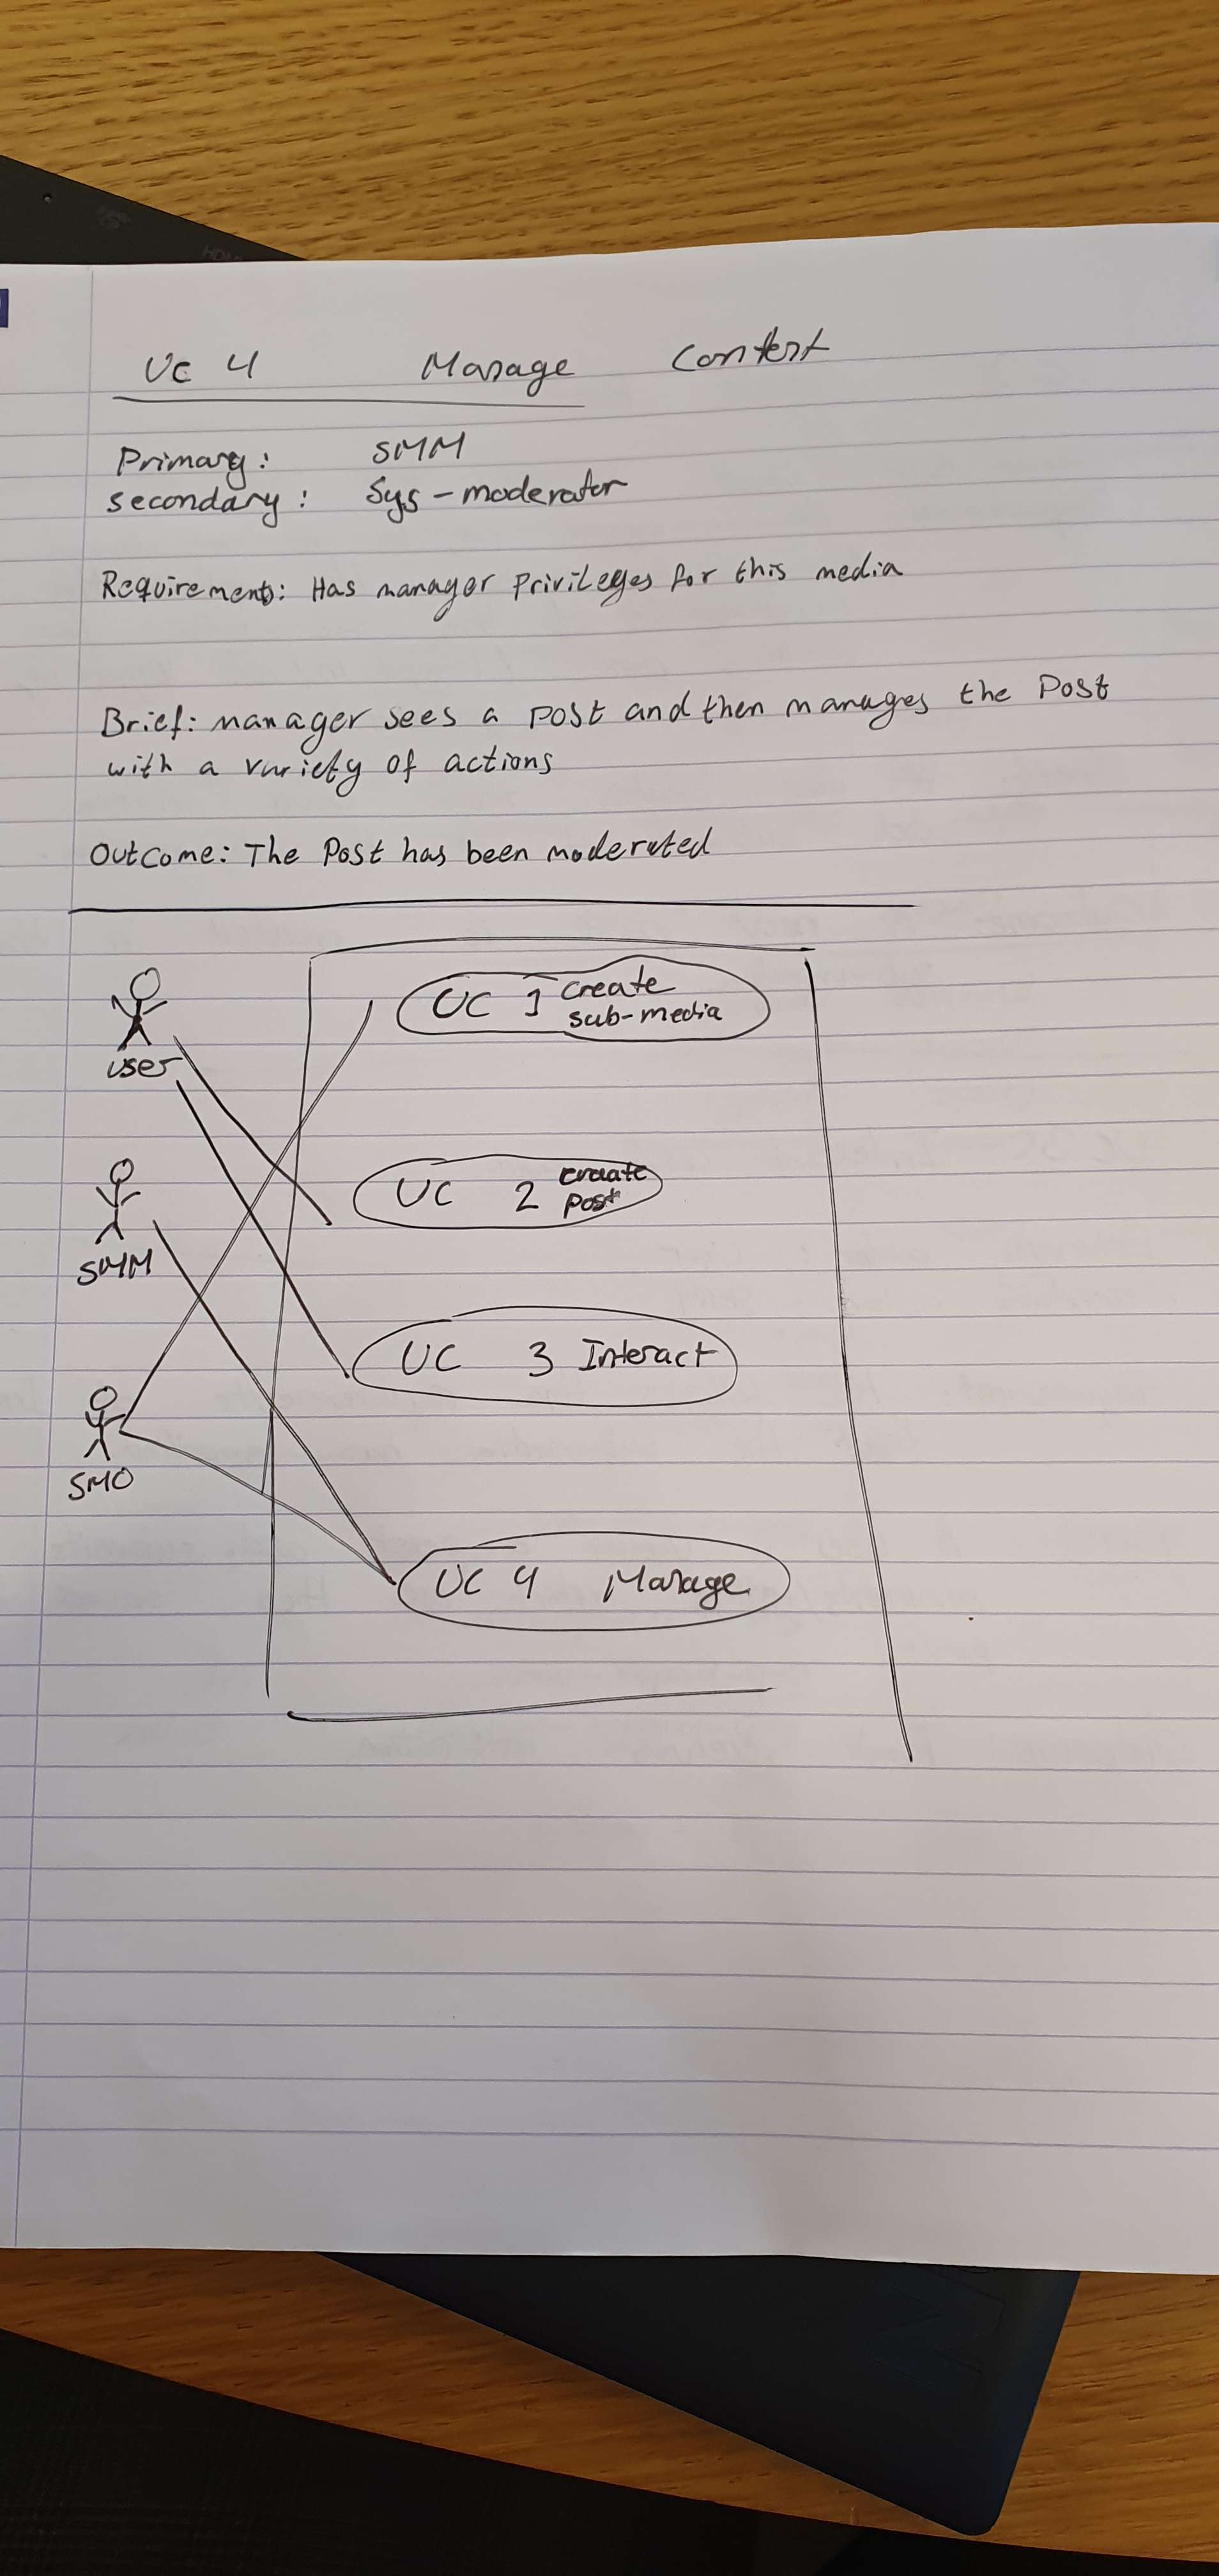 UC 4 Manage Content
Primary: SMM
secondary: Sys-moderator
Requirements: Has manager Privileges for this media
Brief: manager sees a post and then manages the Post
with a variety of actions
Outcome: The Post has been moderated
user
UC 1 create
sub-media
UC 2 create
post
SMM
UC 3 Interact
SMO
UC 4 Manage